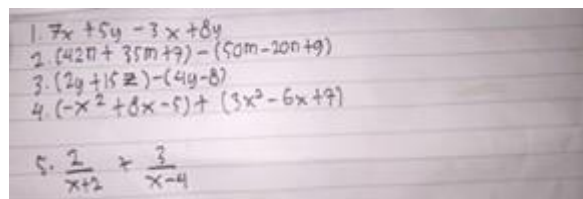 1. 7x + 5y - 3x + 8y
2. (42n + 35m + 7) - (50m - 20n + 9)
3. (2y + 15z) - (4y - 8)
4. (-x² + 8x - 5) + (3x² - 6x + 7)
5. 2/(x+2) + 3/(x-4)